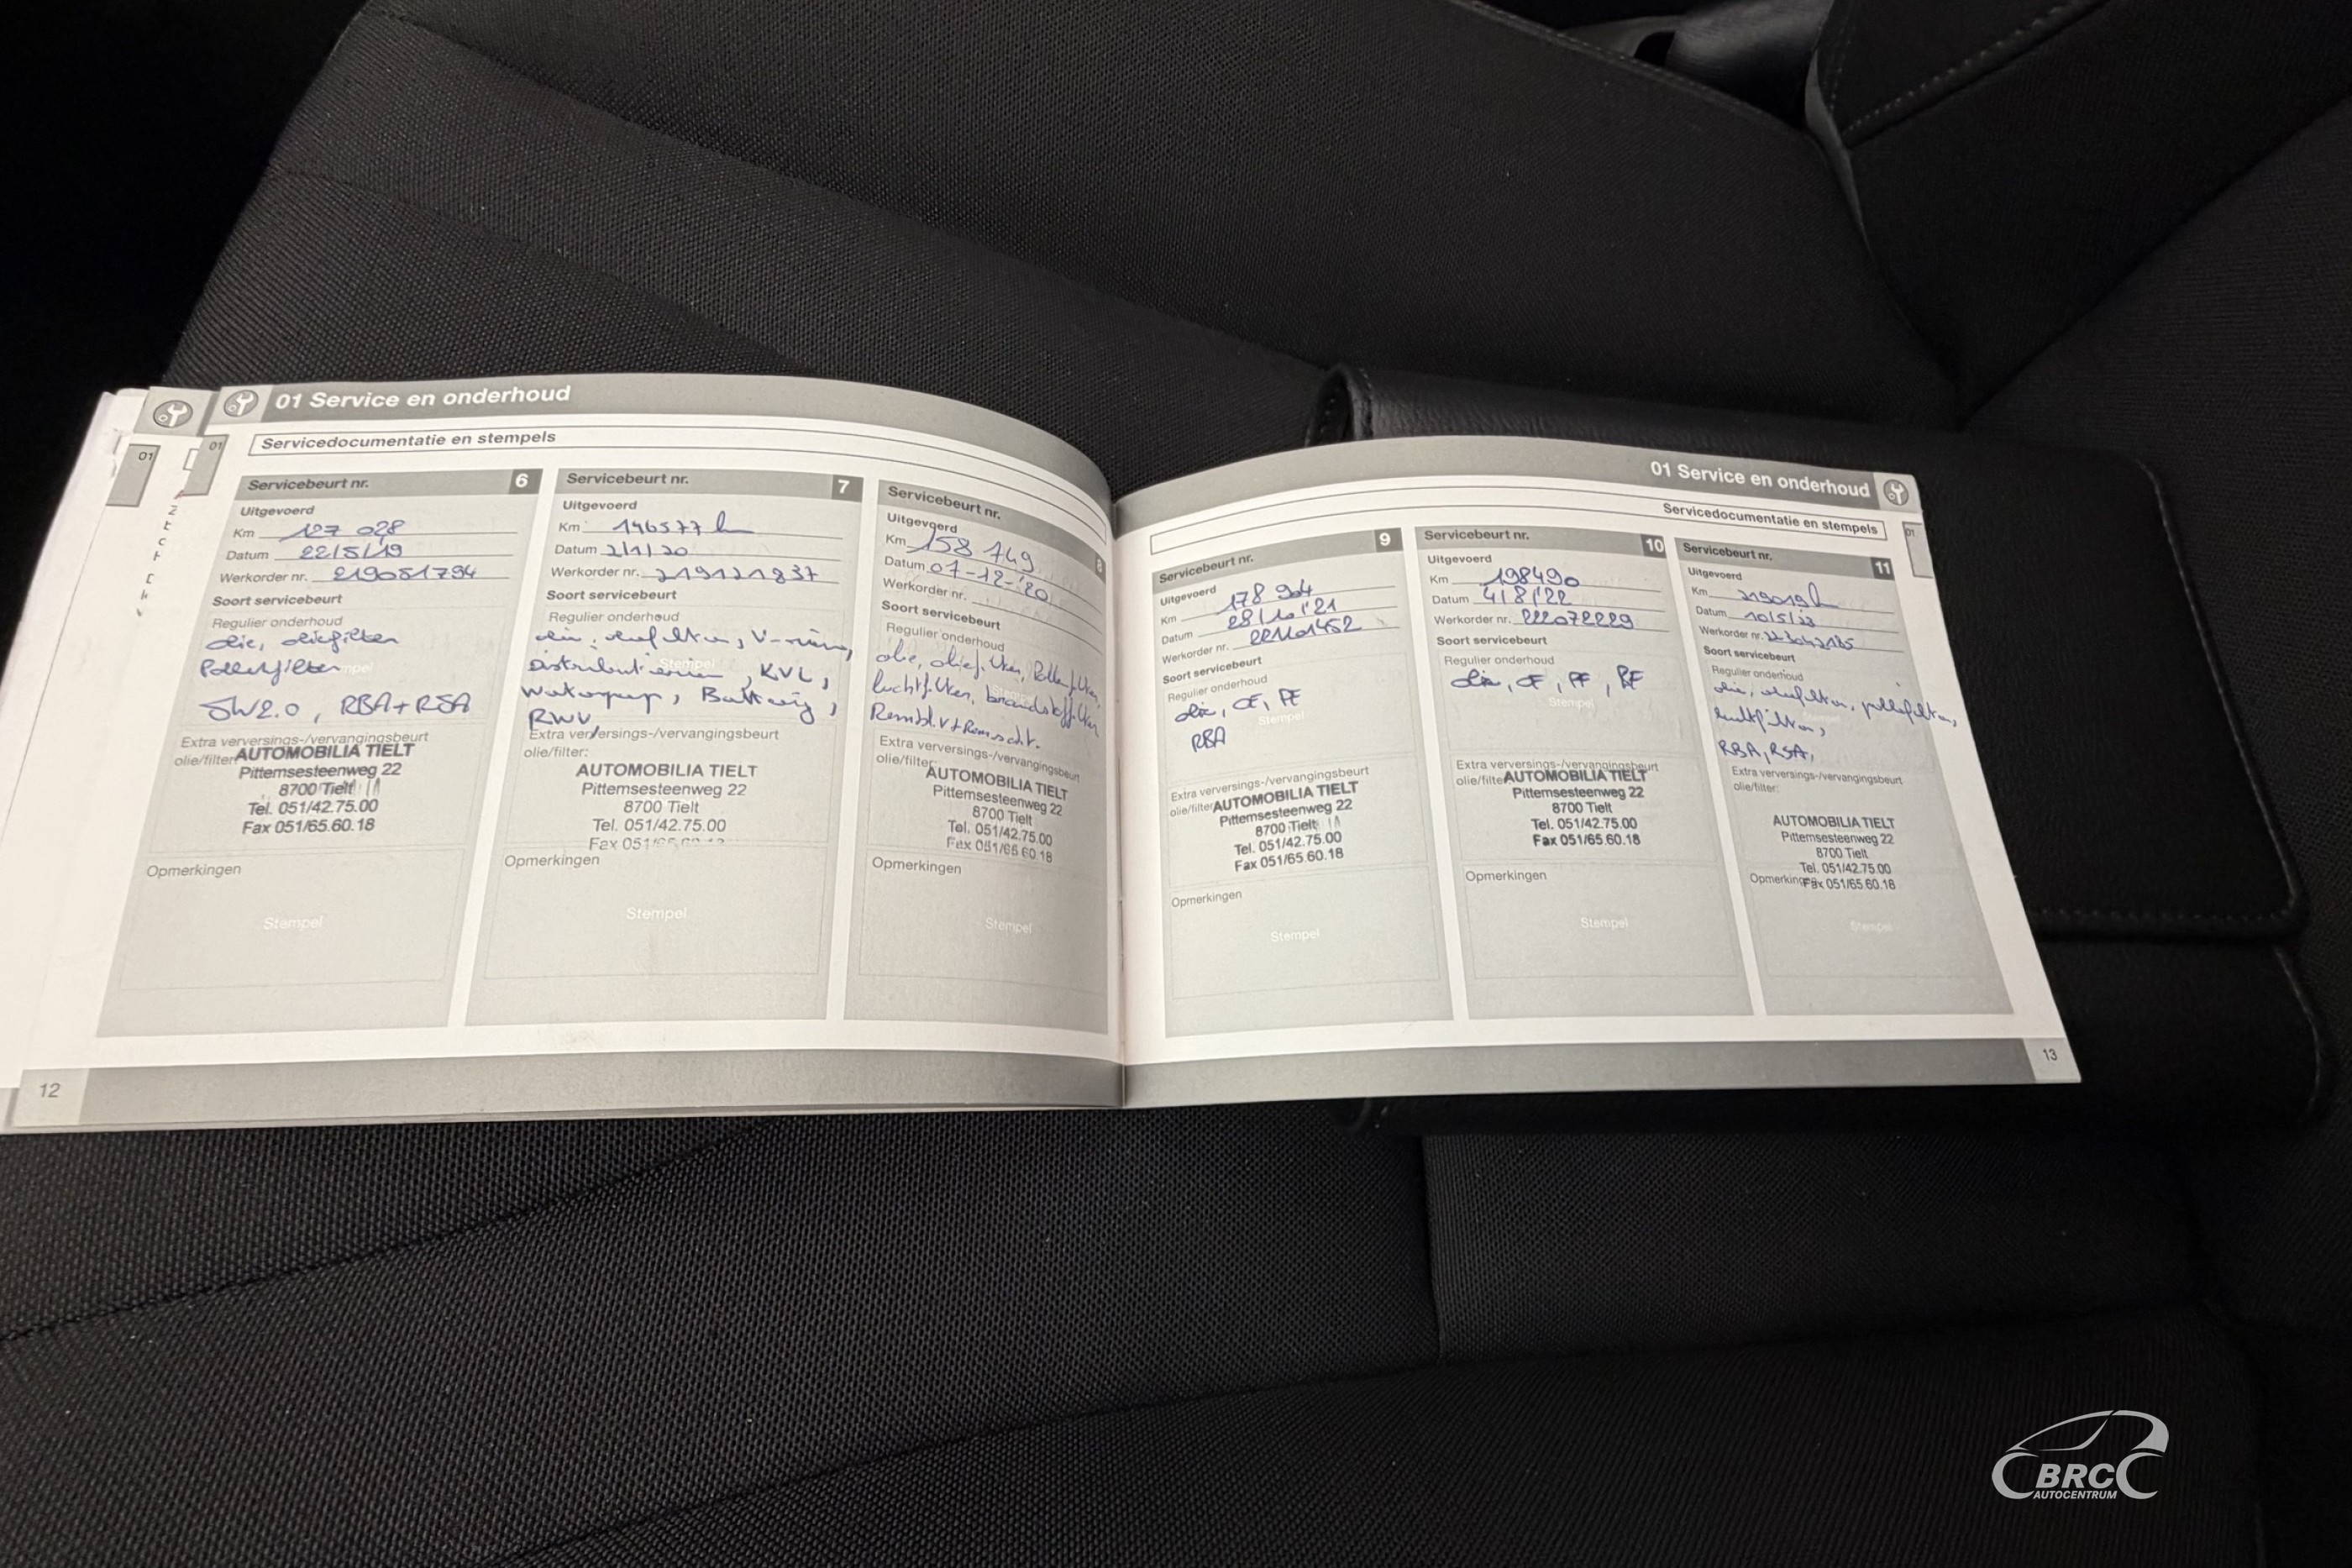 01 Service en onderhoud
01
01
Servicedocumentatie en stempels
Servicebeurt nr. 6
Uitgevoerd
Km 127 028
Datum 22/5/19
Werkorder nr. 219051794
Soort servicebeurt
Regulier onderhoud
olie, oliefilter
Pollenfilter
SW2.0, RBA+RSA
Extra verversings-/vervangingsbeurt
olie/filter:
AUTOMOBILIA TIELT
Pittemsesteenweg 22
8700 Tielt
Tel. 051/42.75.00
Fax 051/65.60.18
Opmerkingen
Stempel
Servicebeurt nr. 7
Uitgevoerd
Km 146577
Datum 2/1/20
Werkorder nr. 219121837
Soort servicebeurt
Regulier onderhoud
Distributieriem, KVL,
Waterpomp, Batterij,
RWV,
Extra verversings-/vervangingsbeurt
olie/filter:
AUTOMOBILIA TIELT
Pittemsesteenweg 22
8700 Tielt
Tel. 051/42.75.00
Fax 051/65.60.18
Opmerkingen
Stempel
Servicebeurt nr. 8
Uitgevoerd
Km 158 749
Datum 07-12-'20
Werkorder nr.
Soort servicebeurt
Regulier onderhoud
olie, oliefilter, Pollenfilter,
luchtfilter, brandstoffilter
Remblv+Remscht.
Extra verversings-/vervangingsbeurt
olie/filter:
AUTOMOBILIA TIELT
Pittemsesteenweg 22
8700 Tielt
Tel. 051/42.75.00
Fax 051/65 60 18
Opmerkingen
Stempel
12
01 Service en onderhoud
01
Servicedocumentatie en stempels
Servicebeurt nr. 9
Uitgevoerd
Km 178 904
Datum 28/10/'21
Werkorder nr. 221101452
Soort servicebeurt
Regulier onderhoud
olie, OF, PF
Stempel
RBA
Extra verversings-/vervangingsbeurt
olie/filter
AUTOMOBILIA TIELT
Pittemsesteenweg 22
8700 Tielt
Tel. 051/42.75.00
Fax 051/65.60.18
Opmerkingen
Stempel
Servicebeurt nr. 10
Uitgevoerd
Km 198490
Datum 4/8/'22
Werkorder nr. 222072229
Soort servicebeurt
Regulier onderhoud
olie, OF, PF, BF
Stempel
Extra verversings-/vervangingsbeurt
olie/filter
AUTOMOBILIA TIELT
Pittemsesteenweg 22
8700 Tielt
Tel. 051/42.75.00
Fax 051/65.60.18
Opmerkingen
Stempel
Servicebeurt nr. 11
Uitgevoerd
Km 219019
Datum 10/5/23
Werkorder nr. 223042185
Soort servicebeurt
Regulier onderhoud
olie, oliefilter, pollenfilter,
luchtfilter,
RBA, RSA,
Extra verversings-/vervangingsbeurt
olie/filter:
AUTOMOBILIA TIELT
Pittemsesteenweg 22
8700 Tielt
Tel. 051/42.75.00
Fax 051/65.60.18
Opmerkingen
Stempel
13
BRC
AUTOCENTRUM